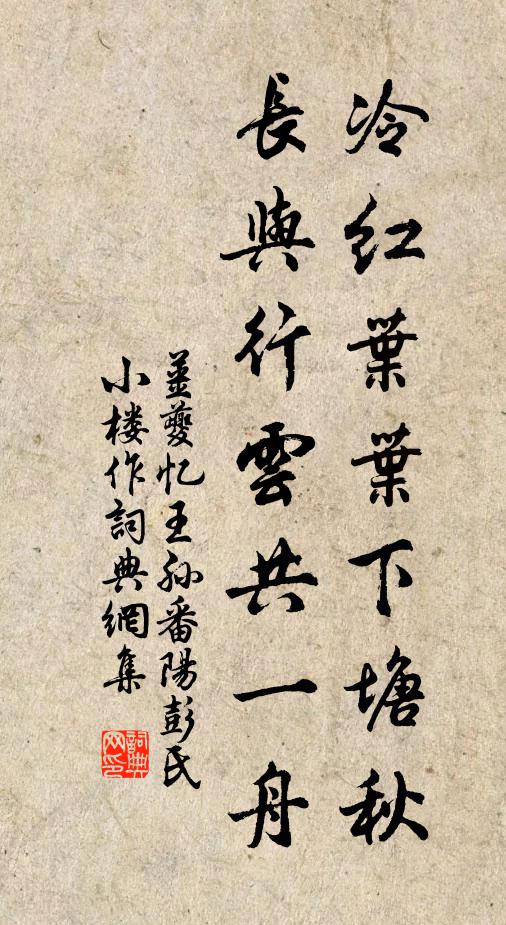 冷紅葉葉下塘秋
長與行雲共一舟
姜夔忆王孙番陽彭氏
小楼作詞典網集
詞典网印